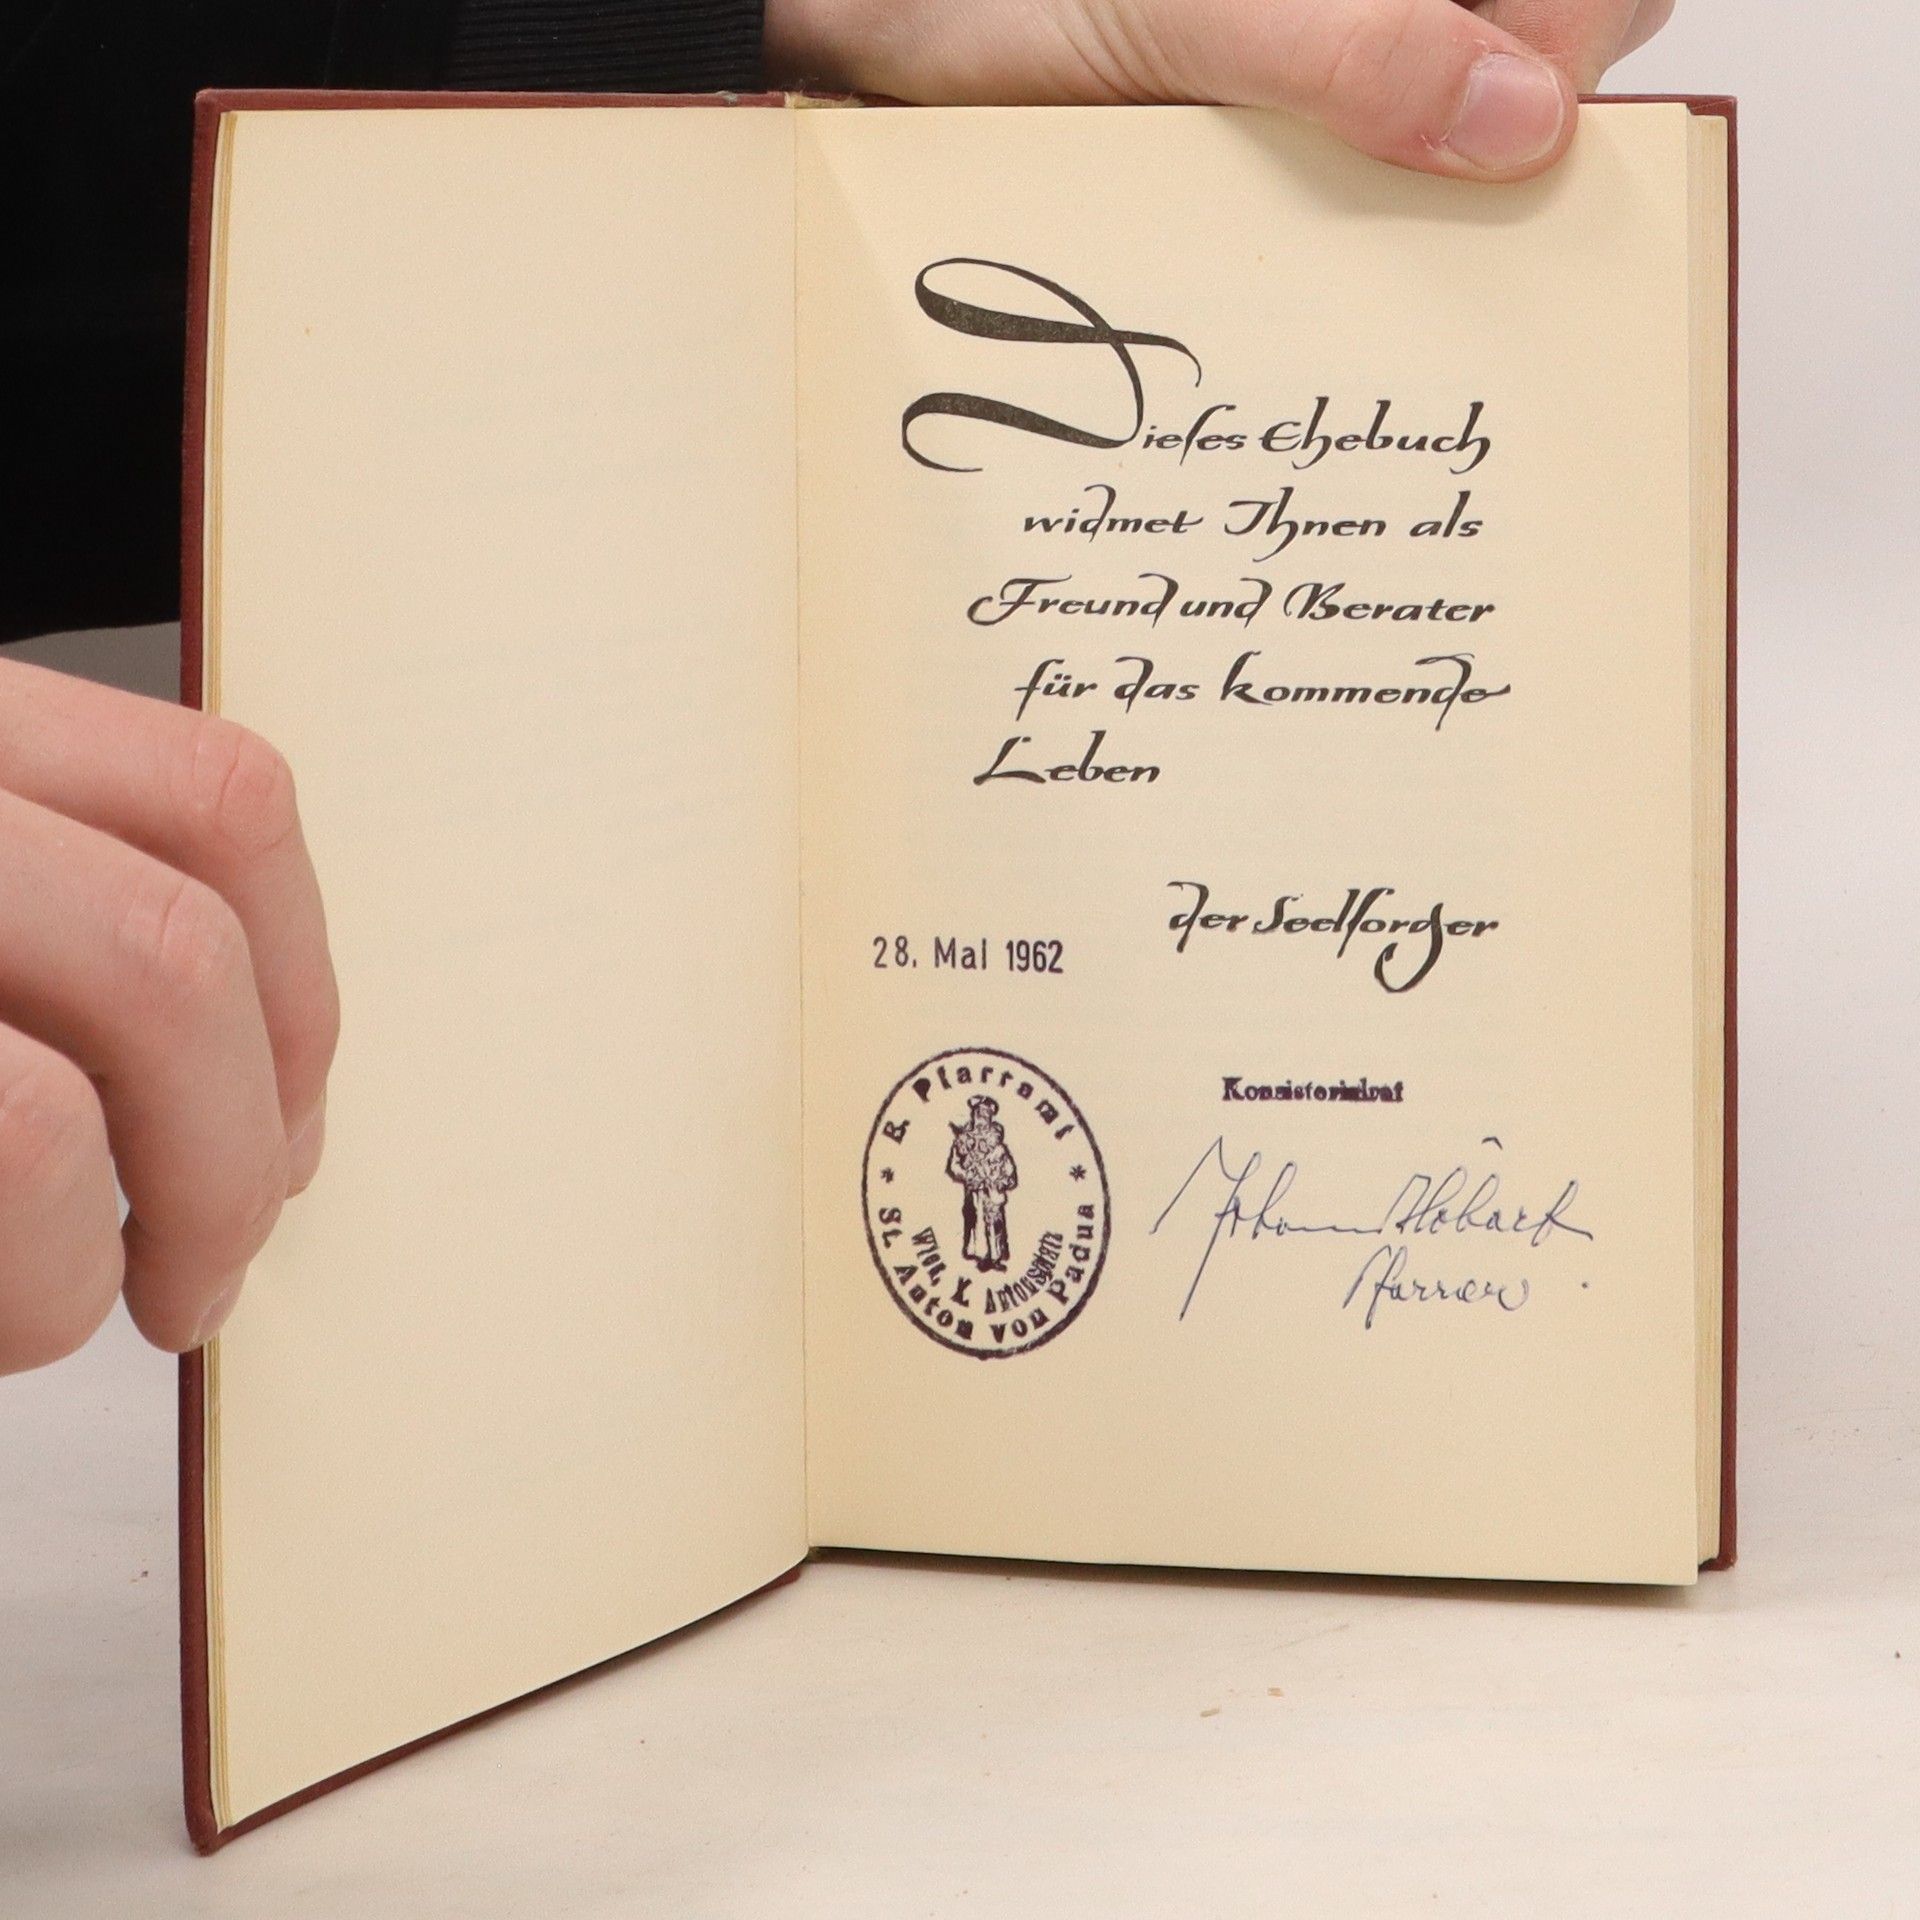 Dieſes Ehebuch
widmet Ihnen als
Freund und Berater
für das kommende
Leben
der Seelſorger
28. Mai 1962
Konsistorialrat
R. Pfarramt
* St. Anton von Padua *
Wien, X. Antonsplatz
Johann
Pfarrer